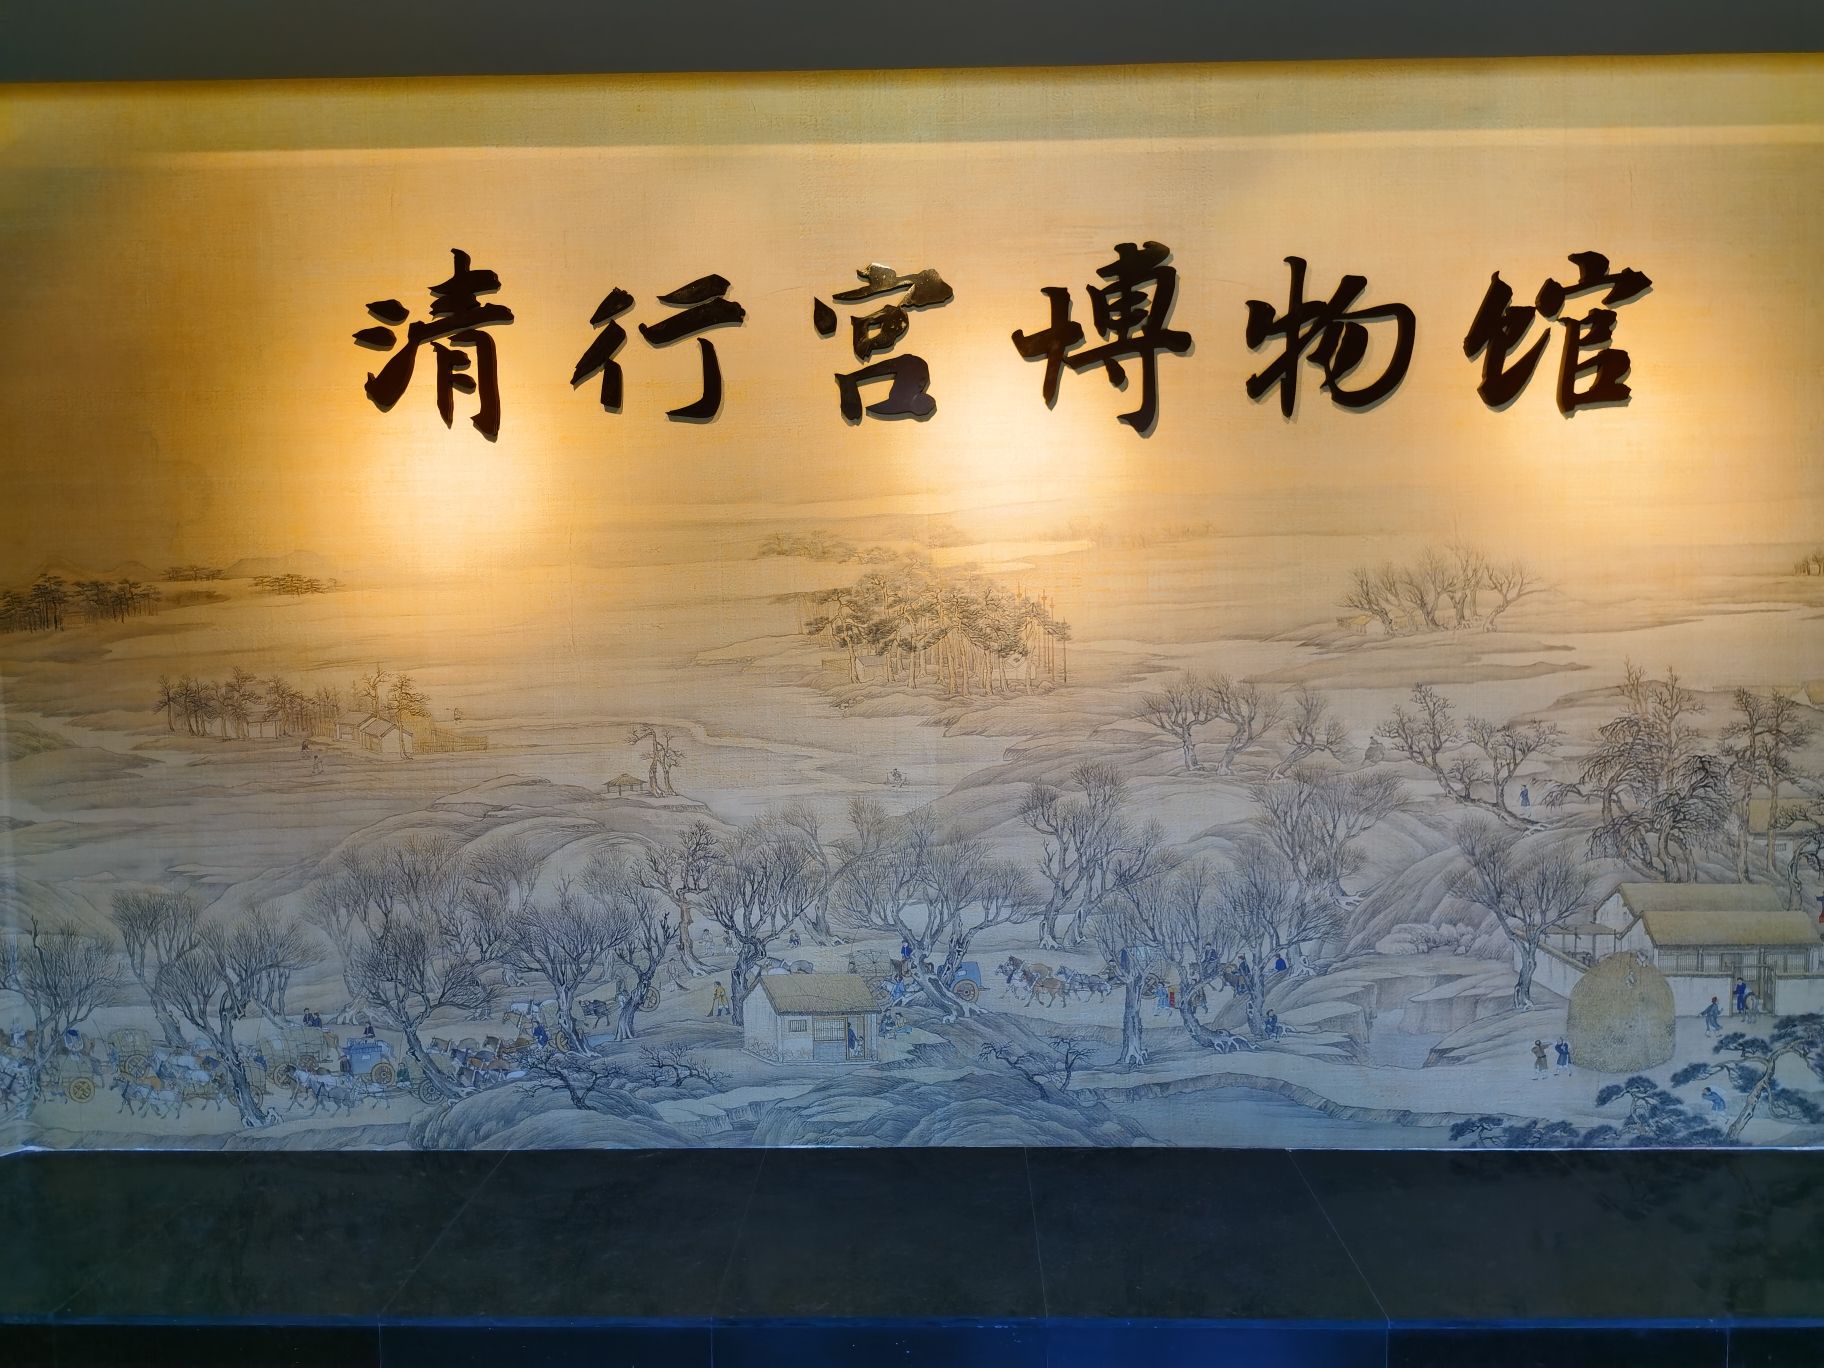 清行宫博物馆